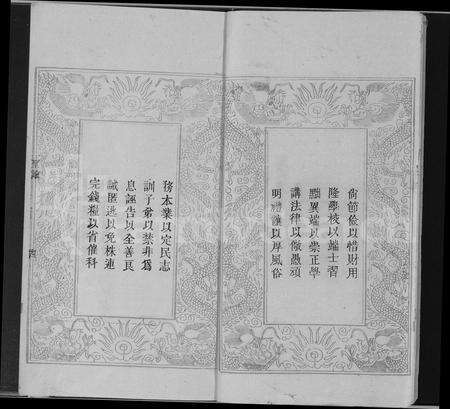 尚節儉以惜財用
隆學校以端士習
黜異端以崇正學
講法律以儆愚頑
明禮讓以厚風俗
務本業以定民志
訓子弟以禁非爲
息誣告以全善良
誡匿逃以免株連
完錢糧以省催科
四